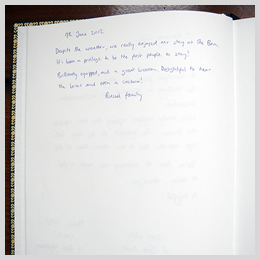 June 2012
Despite the weather, we really enjoyed our stay at the Barn.
It's been a privilege to be the first people to stay!
Brilliantly equipped, and a great location. Delightful to hear
the lambs and even a
family